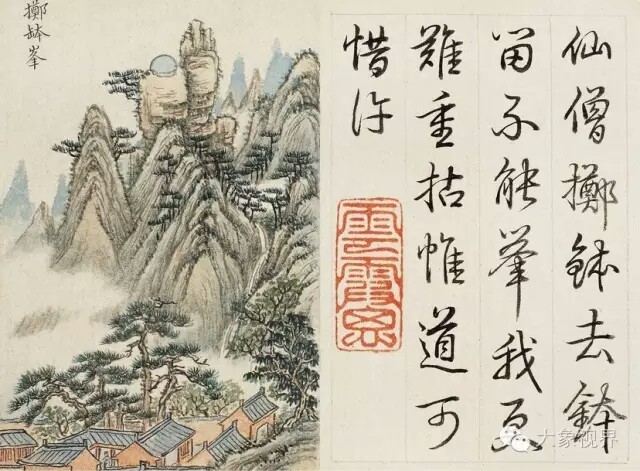 擲缽峯
仙僧擲缽去缽
留不能舉我
難重拈惟道可
惜許
雲霞思
大象视界